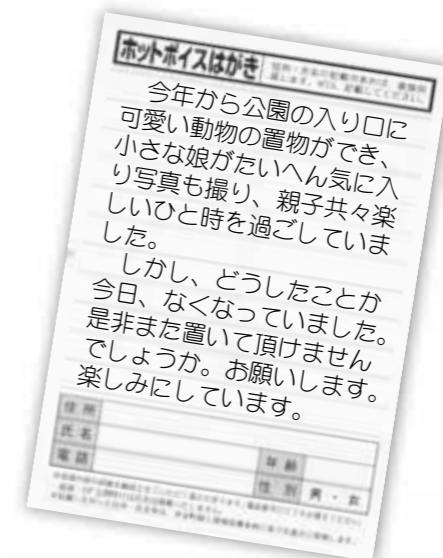 ホットボイスはがき
今年から公園の入り口に
可愛い動物の置物ができ、
小さな娘がたいへん気に入
り写真も撮り、親子共々楽
しいひと時を過ごしていま
した。
しかし、どうしたことか
今日、なくなっていました。
是非また置いて頂けません
でしょうか。お願いします。
楽しみにしています。
住所
氏名
電話
年齢
性別 男・女